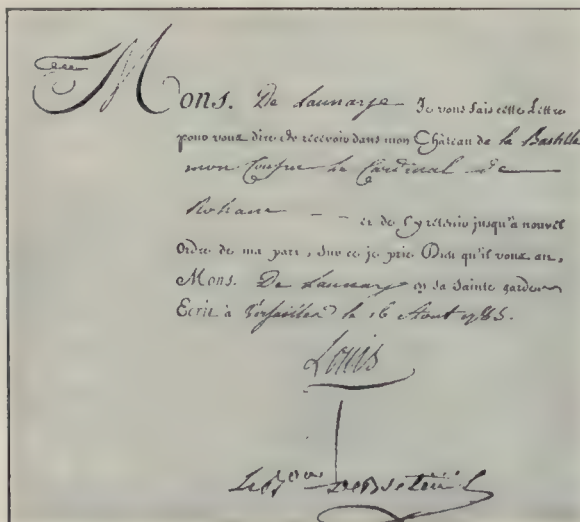 Mons. De Launaye Je vous fais cette Lettre
pour vous dire de recevoir dans mon Château de la Bastille
mon Cousin Le Cardinal de
Rohan et de l'y retenir jusqu'à nouvel
Ordre de ma part, Sur ce je prie Dieu qu'il vous ait,
Mons. De Launay en sa Sainte garde
Ecrit à Versailles le 16 Aout 1785.
Louis
Le Bon De Breteuil